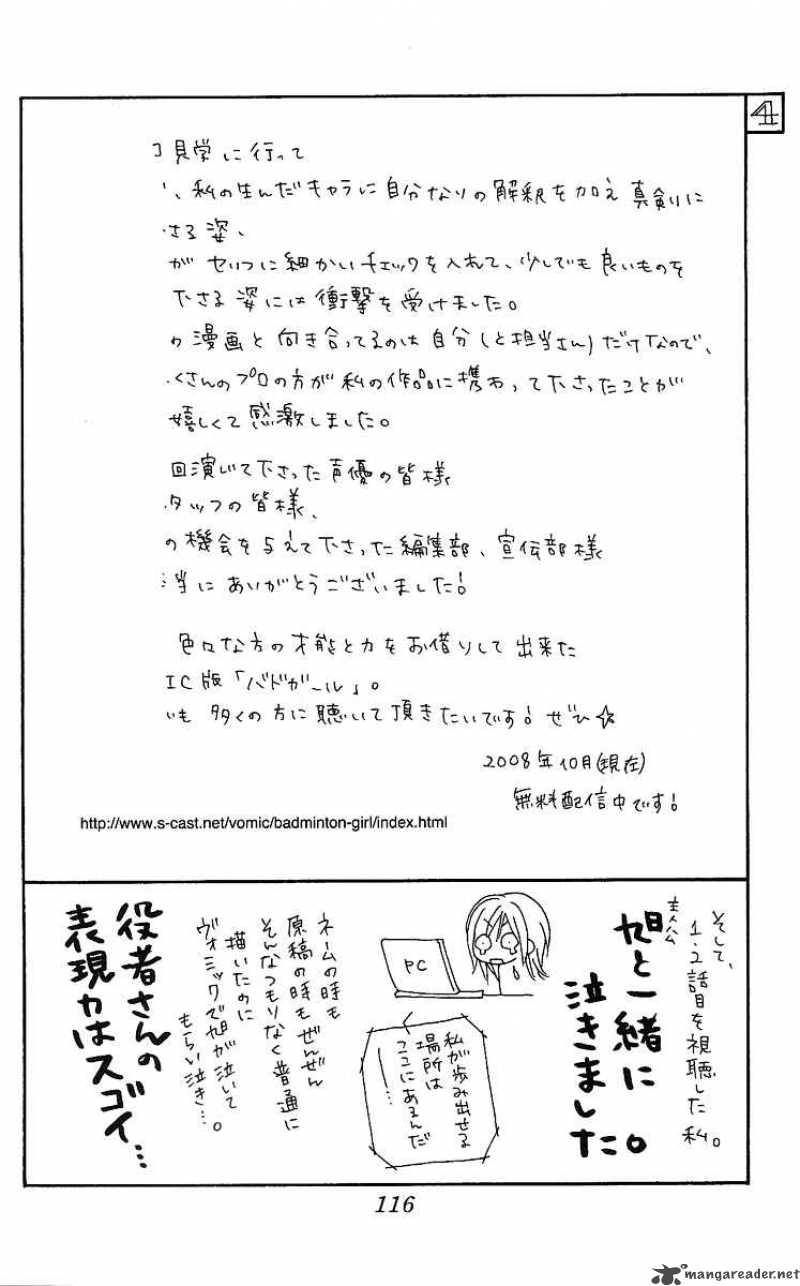 4
見学に行って
、私の生んだキャラに自分なりの解釈を加え真剣に
さる姿、
がせりふに細かいチェックを入れて、少しでも良いものを
下さる姿には衝撃を受けました。
の漫画と向き合ってるのは自分(と担当さん)だけなので、
くさんのプロの方が私の作品に携わって下さったことが
嬉しくて感激しました。
回演じて下さった声優の皆様
タッフの皆様、
の機会を与えて下さった編集部、宣伝部様
当にありがとうございました!
色々な方の才能と力をお借りして出来た
IC版「バドガール」。
も多くの方に聴いて頂きたいです!ぜひ☆
2008年10月(現在)
無料配信中です!
http://www.s-cast.net/vomic/badminton-girl/index.html
そして、
1・2話目を視聴した私。
主人公
旭と一緒に
泣きました。
PC
私が歩み出せる
場所は
ここにあるんだ
ー…
ネームの時も
原稿の時もぜんぜん
そんなつもりなく普通に
描いたのに
ヴォミックで旭が泣いて
もらい泣き…。
役者さんの
表現力はスゴイ…
116
mangareader.net